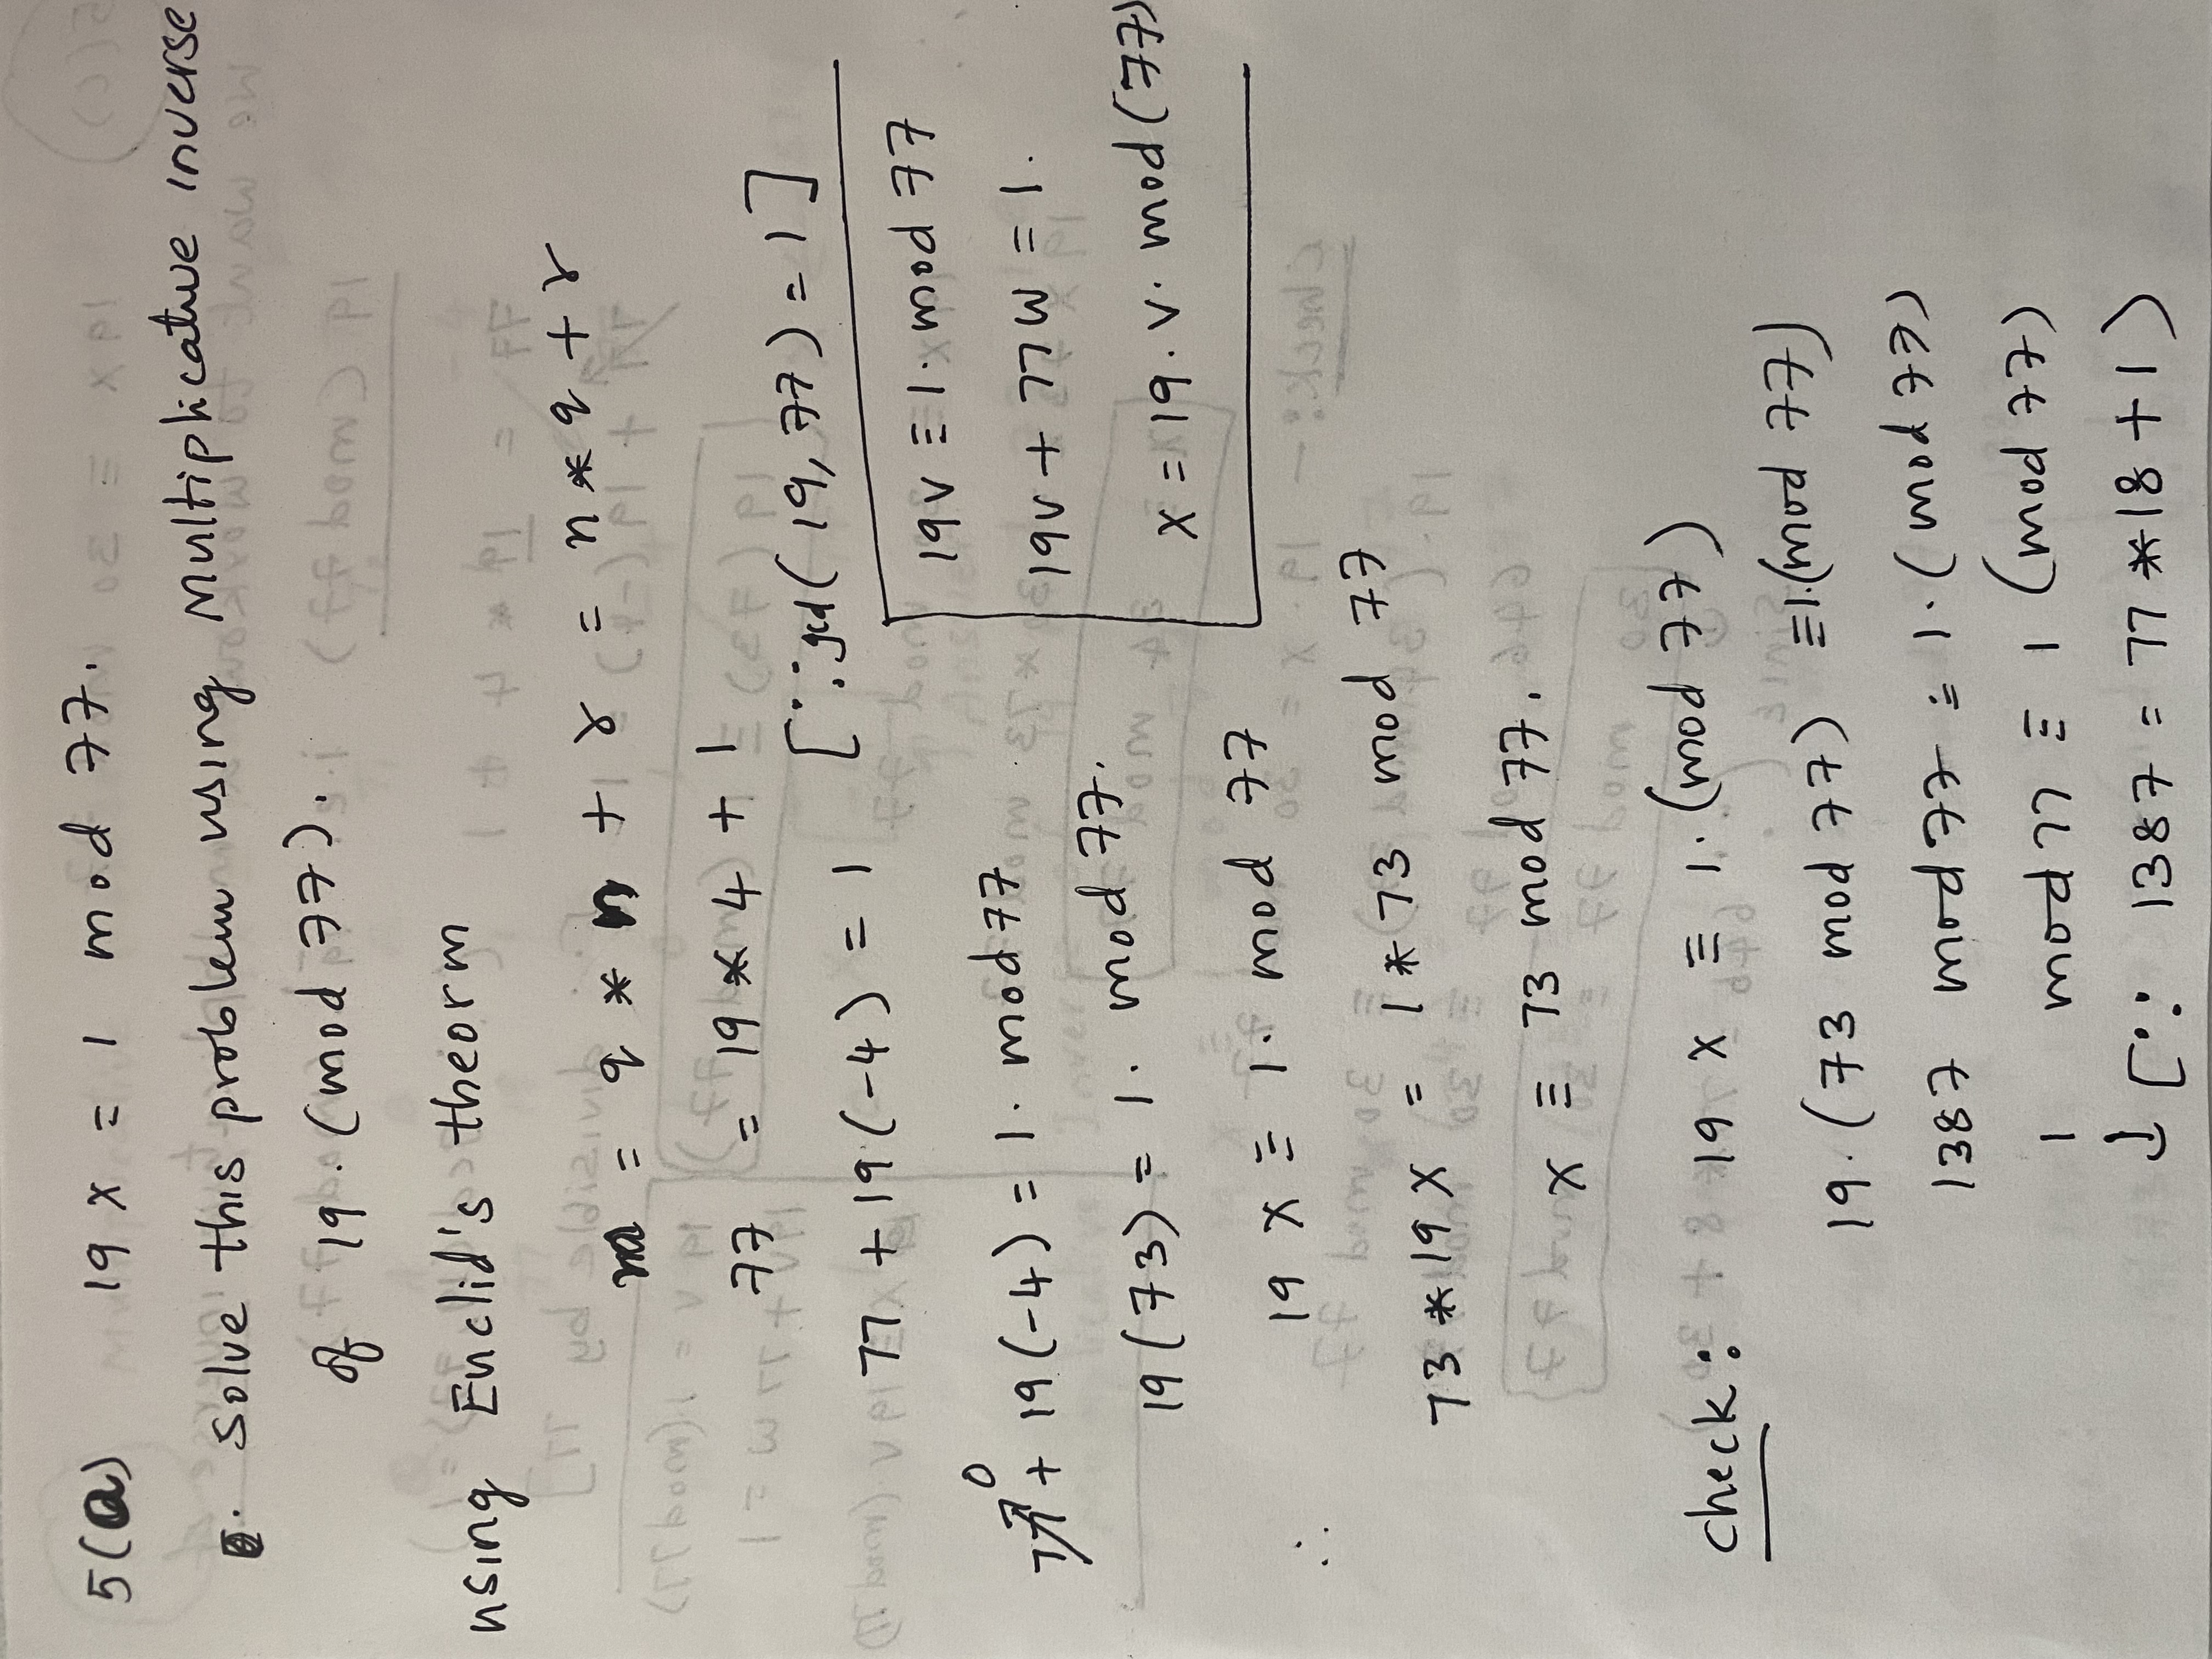 5(a) 19 x = 1 mod 77.
. Solve this problem using Multiplicative inverse
of 19. (mod 77).
using Euclid's theorm
m = q * n + r = n * q + r
77 = 19 * 4 + 1
77 + 19(-4) = 1 [∵ gcd(19, 77) = 1]
19v ≡ 1. mod 77
19v + 77w = 1.
x = 19. v. mod (77)
77 0 + 19(-4) = 1. mod 77
19(73) = 1. mod 77.
∴ 19 x ≡ 1. mod 77
73 * 19 x = 1 * 73 mod 77
x ≡ 73 mod 77.
check: 19 x ≡ 1. (mod 77)
19. (73 mod 77) ≡ 1. (mod 77)
1387 mod 77 ≡ 1. (mod 77)
1 mod 77 ≡ 1 (mod 77)
↓ [∵ 1387 = 77 * 18 + 1)